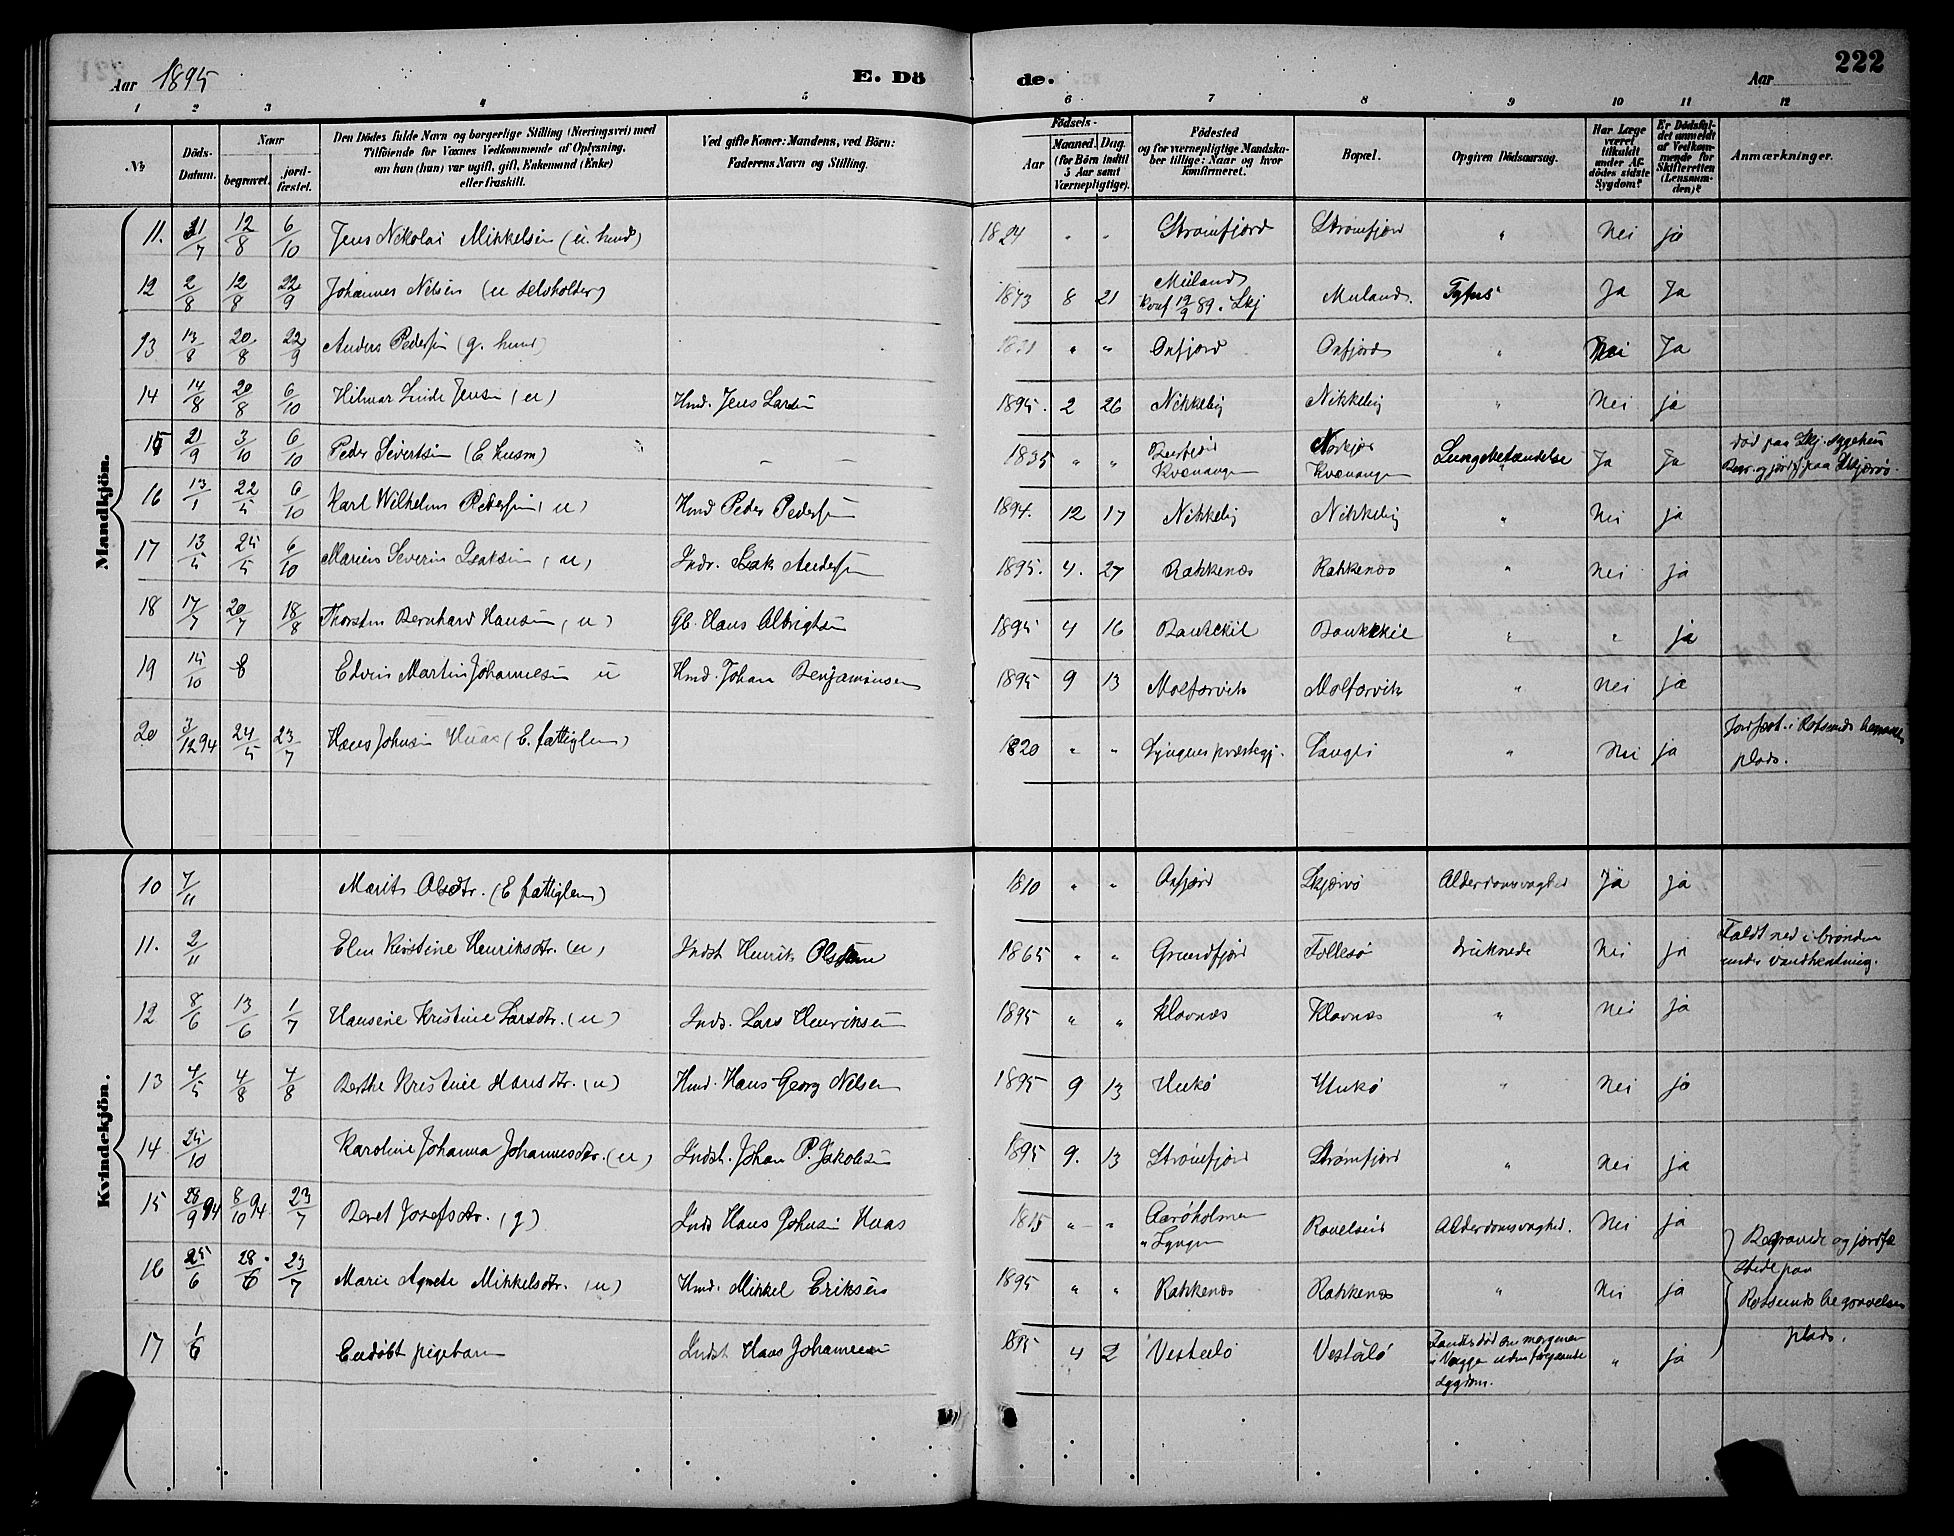 Aar 1895 E. Dö de. Aar 222
1 2 3 4 5 6 7 8 9 10 11 12
№
Döds-Datum.
Naar
begravet.
jord-fæstet.
Den Dödes fulde Navn og borgerlige Stilling (Næringsvei) med
Tilföiende for Voxnes Vedkommende af Oplysning,
om han (hun) var ugift, gift, Enkemand (Enke)
eller fraskilt.
Ved gifte Koner: Mandens, ved Börn:
Faderens Navn og Stilling.
Födsels-
Aar
Maaned. Dag.
(for Börn indtil
5 Aar samt
Værnepligtige).
Födested
og for værnepligtige Mandska-
ber tillige: Naar og hvor
konfirmeret.
Bopæl.
Opgiven Dödsaarsag.
Har Læge
været
tilkaldt
under Af-
dödes sidste
Sygdom?
Er Dödsfal-
det anmeldt
af Vedkom-
mende for
Skifteretten
(Lensman-
den)?
Anmærkninger.
Mandkjön.
11. 31/7 12/8 6/10 Jens Nikolai Mikkelsen (u. hmd) 1824 " " Strømfjord Strømfjord " Nei ja
12 2/8 12/8 22/9 Johannes Nilsen (u selvholder) 1873 8 21 Meiland Konf 19/9 89. Skj Meiland. Tyfus Ja Ja
13 13/8 20/8 22/9 Anders Pedersen (g. hmd) " " Oxfjord Oxfjord " Nei Ja
14 14/8 20/8 6/10 Hilmar Linde Jensen (u) Hmd. Jens Larsen 1895. 2 26 Nikkeby Nikkeby " Nei ja
15 21/9 3/10 6/10 Peder Sivertsen (E husm) – – 1835 " " Burfjord Kvænangen Kvænangen Lungebetændelse Ja Ja død paa Skj. sygehus
Begr. og jordf. paa Skjærvø.
16 13/1 22/5 6/10 Karl Wilhelm Pedersen (u) Hmd Peder Pedersen 1894. 12 17 Nikkeby Nikkeby " Nei ja
17 13/5 25/5 6/10 Marius Severin Isaksen, (u) Inds. Isak Andersen 1895. 4. 27 Rakkenæs Rakkenæs " Nei ja
18 17/7 20/7 18/8 Thorsten Bernhard Hansen (u) Gb. Hans Albrigtsen 1895 4 16 Baukekil Baukekil " " ja
19 15/10 8 Edvin Martin Johannesen u Hmd. Johan Benjaminsen 1895 9 13 Molfarvik Molfarvik " Nei ja
20 3/12 94 24/5 23/7 Hans Johnsen Huas (E. fattiglem) 1820 " " Lyngens præstegj. " Nei ja Jordfæst. i Rotsunds
plads.
Kvindekjön.
10 7/11 Marit Olsdtr. (E fattiglem) 1810 " " Oxfjord Skjærvø Alderdomssvaghed Ja ja
11. 2/11 Elen Kirstine Henriksdtr. (u) Indst Henrik Olsen 1865 " " Grundfjord Follesø druknede Nei ja Faldt ned i brønden
under vandhentning.
12 8/6 13/6 1/7 Hansine Kristine Larsdtr. (u) Inds. Lars Henriksen 1895 " " Klovnæs Klovnæs " Nei ja
13 4/5 4/8 4/8 Berthe Kristine Hansdtr. (u) Hmd. Hans Georg Nilsen 1895 9 13 Uukø Uukø " Nei ja
14 25/10 Karoline Johanna Johannesdtr. (u) Indst. Johan P. Jakobsen 1895 9. 13 Strømfjord Strømfjord " Nei ja
15 28/9 94 8/10 94 23/7 Beret Josefsdtr. (g) Inds Hans Johnsen Huas 1815 " " Aarøholmen
" Lyngen Ravelseid Alderdomssvaghed. Nei ja
16 25/6 28/6 23/7 Marie Agnete Mikkelsdtr. (u) Hmd. Mikkel Eriksen 1895 " " Rakkenæs Rakkenæs " Nei ja Begravede og jordfæ
stede paa
Rotsunds begravelses
plads.
17 1/6 Endøbt pigebarn Indst Hans Johannesen 1895 4 2 Vesterlø " ja
Fandtes død om morgenen
i Vuggen uden forgaaende
sygdom.